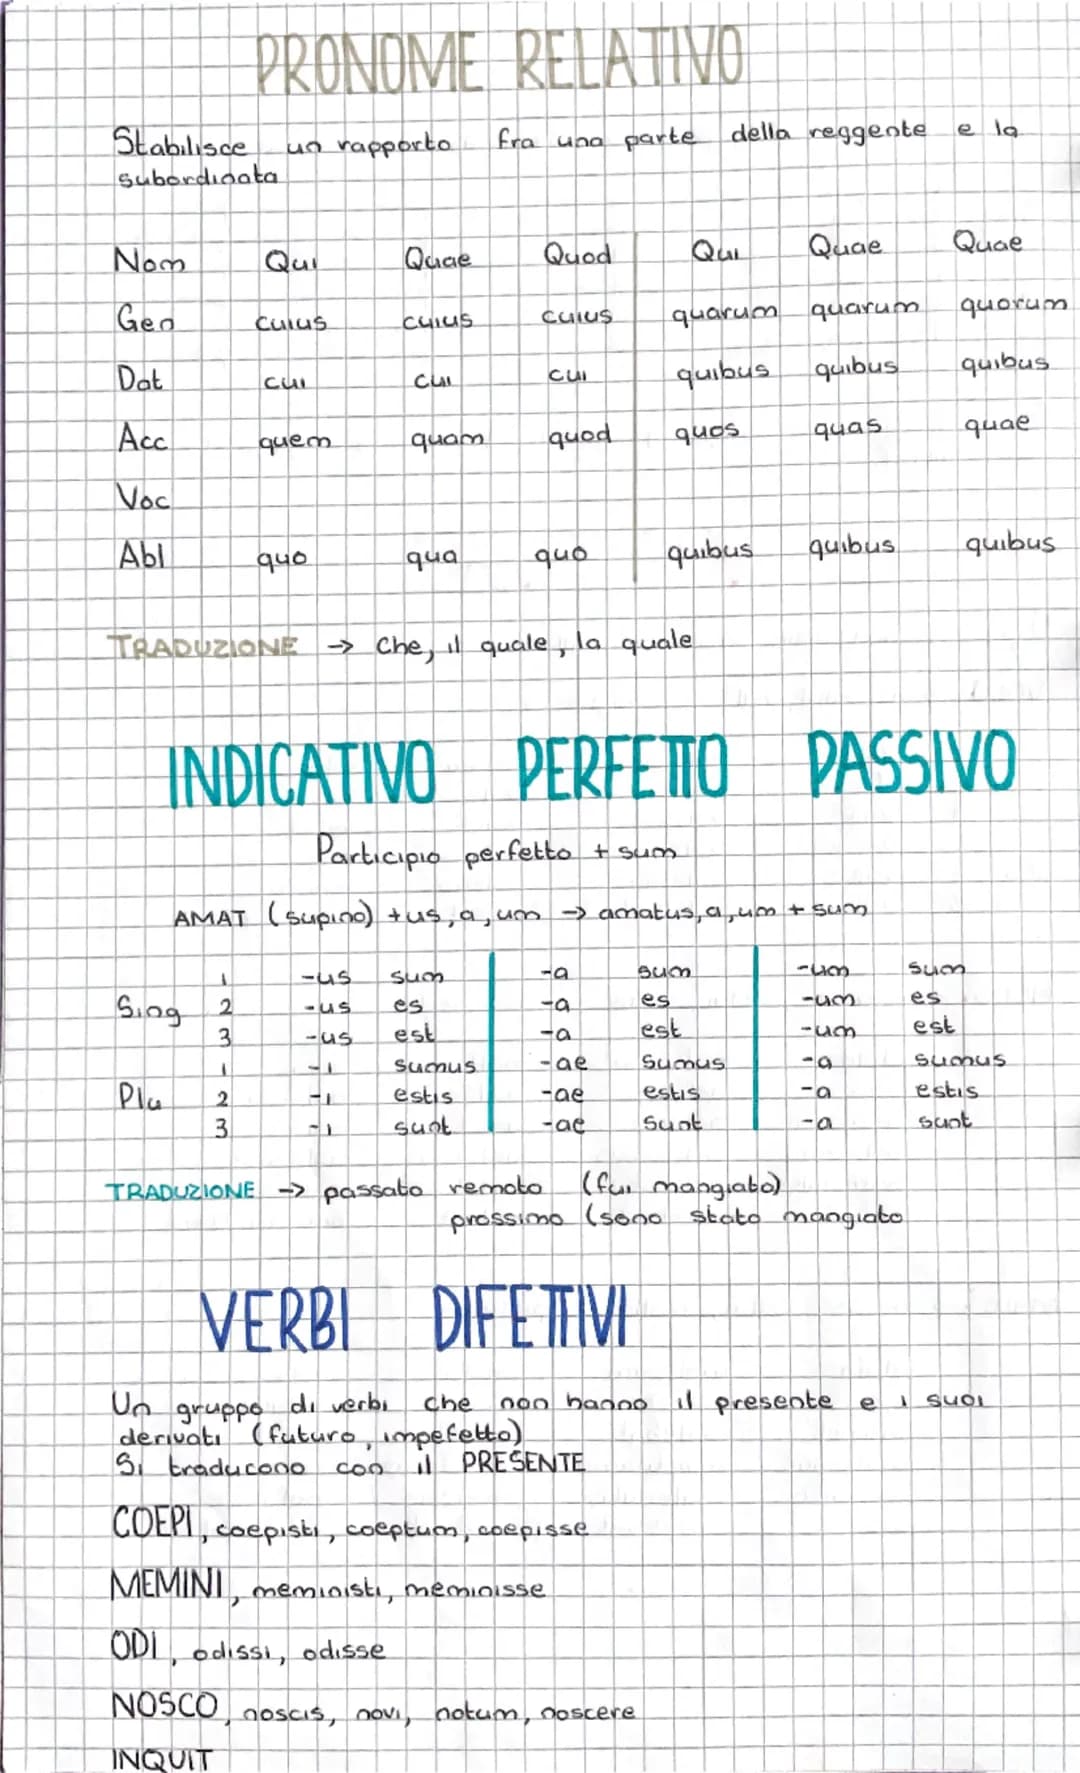 PRONOME RELATIVO
Stabilisce un rapporto fra una parte della reggente e la
subordinata
Nom Qui Quae Quod Qui Quae Quae
Gen cuius cuius cuius quarum quarum quorum
Dat cui cui cui quibus quibus quibus
Acc quem quam quod quos quas quae
Voc
Abl quo qua quo quibus quibus quibus
TRADUZIONE → Che, il quale, la quale
INDICATIVO PERFETTO PASSIVO
Participio perfetto + sum
AMAT (supino) +us, a, um → amatus, a, um + sum
1 -us sum -a sum -um sum
Sing 2 -us es -a es -um es
3 -us est -a est -um est
1 -i sumus -ae sumus -a sumus
Plu 2 -i estis -ae estis -a estis
3 -i sunt -ae sunt -a sunt
TRADUZIONE → passato remoto (fui mangiato)
prossimo (sono stato mangiato
VERBI DIFETTIVI
Un gruppo di verbi che non hanno il presente e i suoi
derivati (futuro, impefetto)
Si traducono con il PRESENTE
COEPI, coepisti, coeptum, coepisse
MEMINI, meministi, meminisse
ODI, odissi, odisse
NOSCO, noscis, novi, notum, noscere
INQUIT